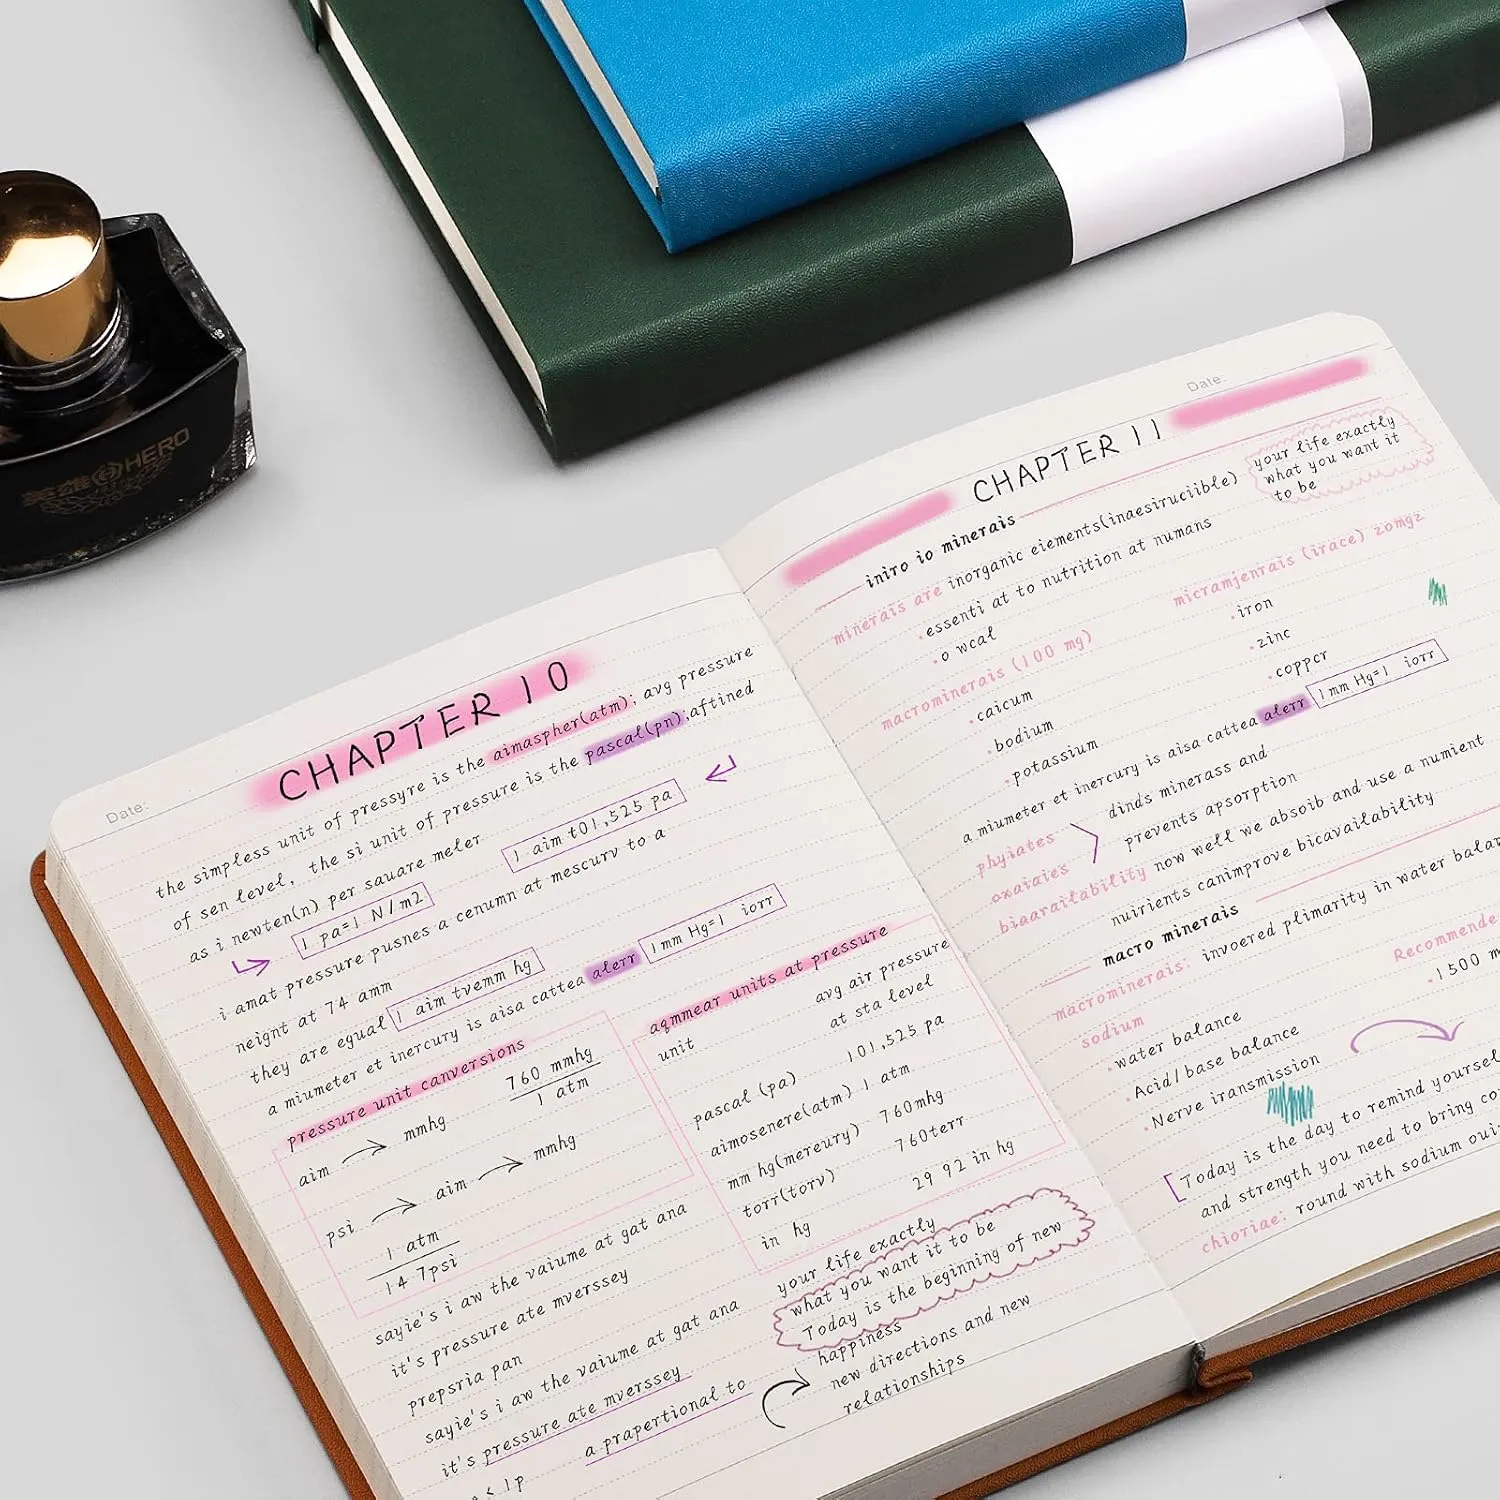 英雄 HERO
Date:
CHAPTER 10
the simpless unit of pressyre is the aimaspher(atm); avg pressure
of sen level, the si unit of pressure is the pascal(pn);aftined
as i newten(n) per sauare meler
1 aim t01,525 pa
1 pa=1 N/m2
i amat pressure pusnes a cenumn at mescurv to a
neignt at 74 amm
they are egual 1 aim tvemm hg
a miumeter et inercury is aisa cattea aterr 1mm Hg=1 iorr
pressure unit canversions
aim mmhg
760 mmhg
1 atm
psi aim mmhg
1 atm
14 7psi
sayie's i aw the vaiume at gat ana
it's pressure ate mverssey
prepsria pan
sayie's i aw the vaiume at gat ana
it's pressure ate mverssey
a prapertional to
< 1p
aqmmear units at pressure
unit
avg air pressure
at sta level
pascal (pa) 101,525 pa
aimosenere(atm) 1 atm
mm hg(mereury) 760mhg
torr(torv) 760terr
in hg 29 92 in hg
your life exactly
what you want it to be
Today is the beginning of new
happiness
new directions and new
relationships
Date:
CHAPTER 11
your life exactly
what you want it
to be
iniro io minerais
minerais are inorganic eiements(inaesiruciible)
essenti at to nutrition at numans
o wcal
macrominerais (100 mg)
caicum
bodium
potassium
micramjenrais (irace) zomgz
iron
zinc
coppcr
a miumeter et inercury is aisa cattea aterr 1mm Hg=1 iorr
phyiates
oxaiaies
dinds minerass and
prevents apsorption
biaarailability now well we absoib and use a numient
nuirients canimprove bicavailability
macro minerais
macrominerais: invoered plimarity in water balan
sodium
water balance
Acid/base balance
Nerve iransmission
Recommende
1500 m
Today is the day to remind yoursel
and strength you need to bring co
chioriae: round with sodium oui